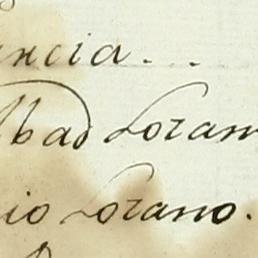 ncia...
Abad Lozan
io Lozano.